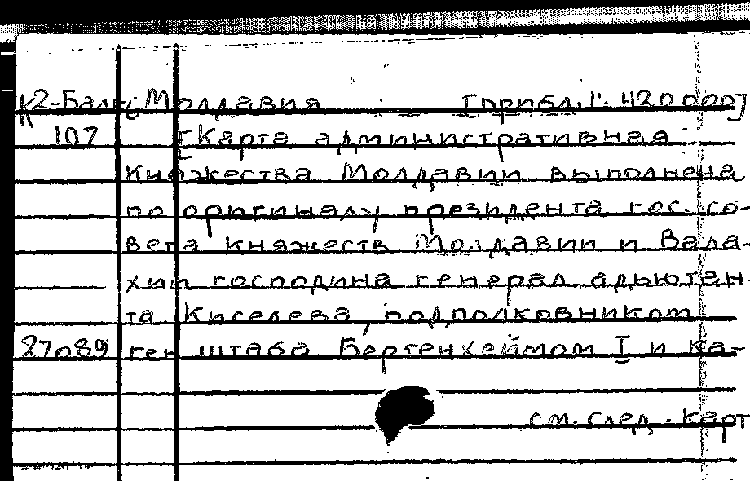 К2-Балк Молдавия [прибл. 1:420000]
107 [Карта административная
Княжества Молдавии выполнена
по оригиналу президента гос. со-
вета княжеств Молдавии и Вала-
хии господина генерал адьютан
та Киселева, подполковником
27089 ген штаба Бергенхеймом I и ка-
см. след. карт